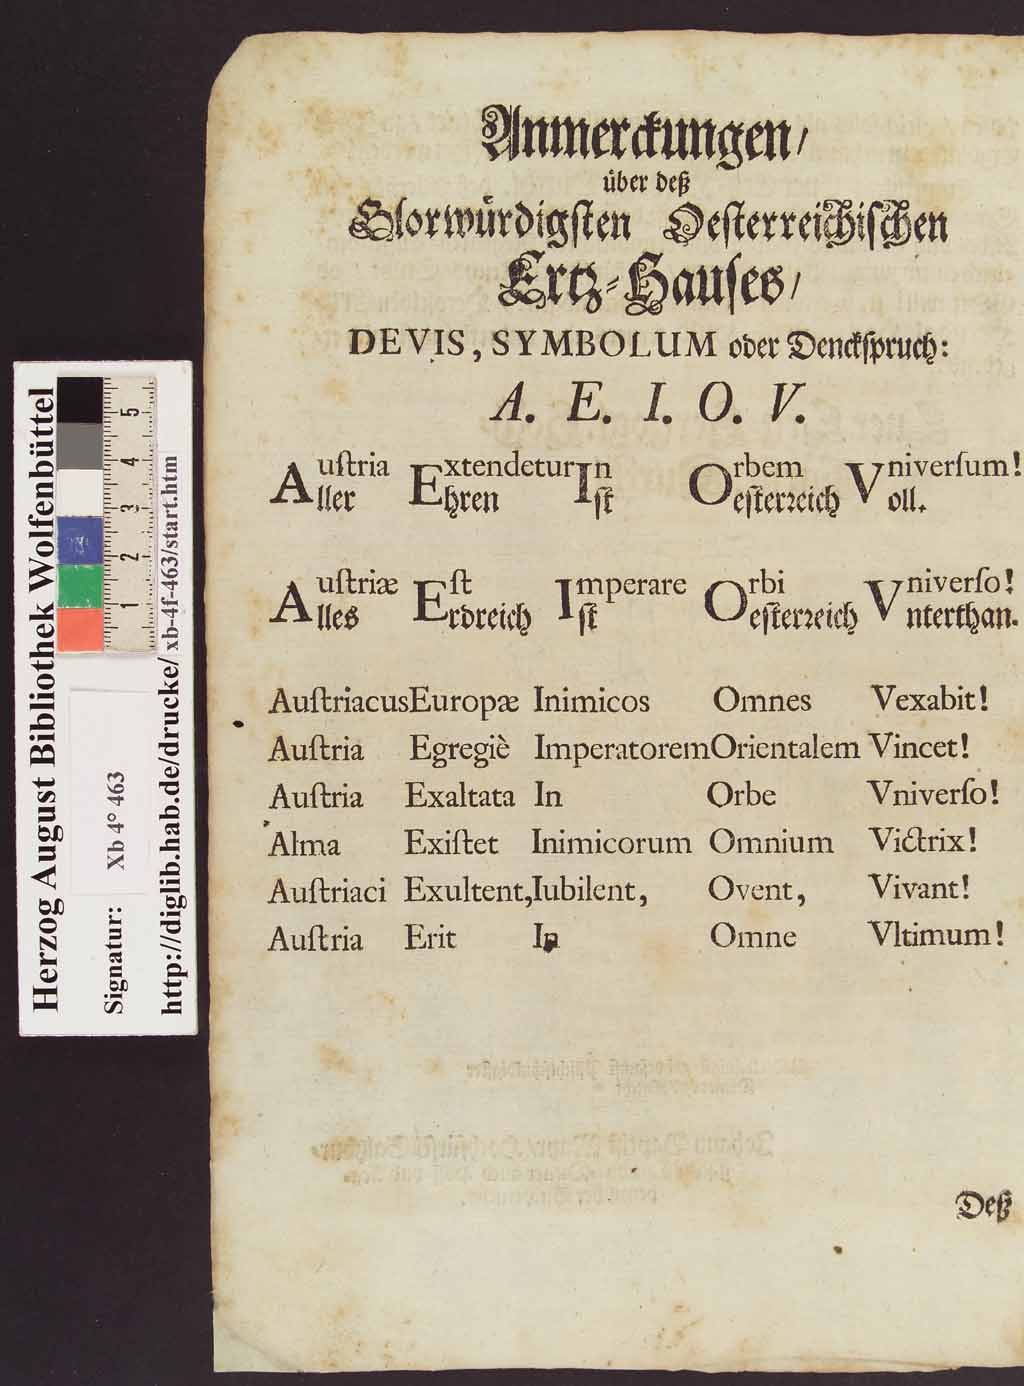 Anmerckungen/
über deß
Glorwürdigſten Oeſterreichiſchen
Ertz-Hauſes/
DEVIS, SYMBOLUM oder Denckſpruch:
A. E. I. O. V.
Auſtria Extendetur In Orbem Vniverſum!
Aller Ehren Iſt Oeſterꝛeich Voll.
Auſtriæ Eſt Imperare Orbi Vniverſo!
Alles Erdreich Iſt Oeſterꝛeich Vnterthan.
Auſtriacus Europæ Inimicos Omnes Vexabit!
Auſtria Egregiè Imperatorem Orientalem Vincet!
Auſtria Exaltata In Orbe Vniverſo!
Alma Exiſtet Inimicorum Omnium Victrix!
Auſtriaci Exultent, Iubilent, Ovent, Vivant!
Auſtria Erit In Omne Vltimum!
Deß
Herzog August Bibliothek Wolfenbüttel
Signatur: Xb 4° 463
http://diglib.hab.de/drucke/xb-4f-463/start.htm
1 2 3 4 5